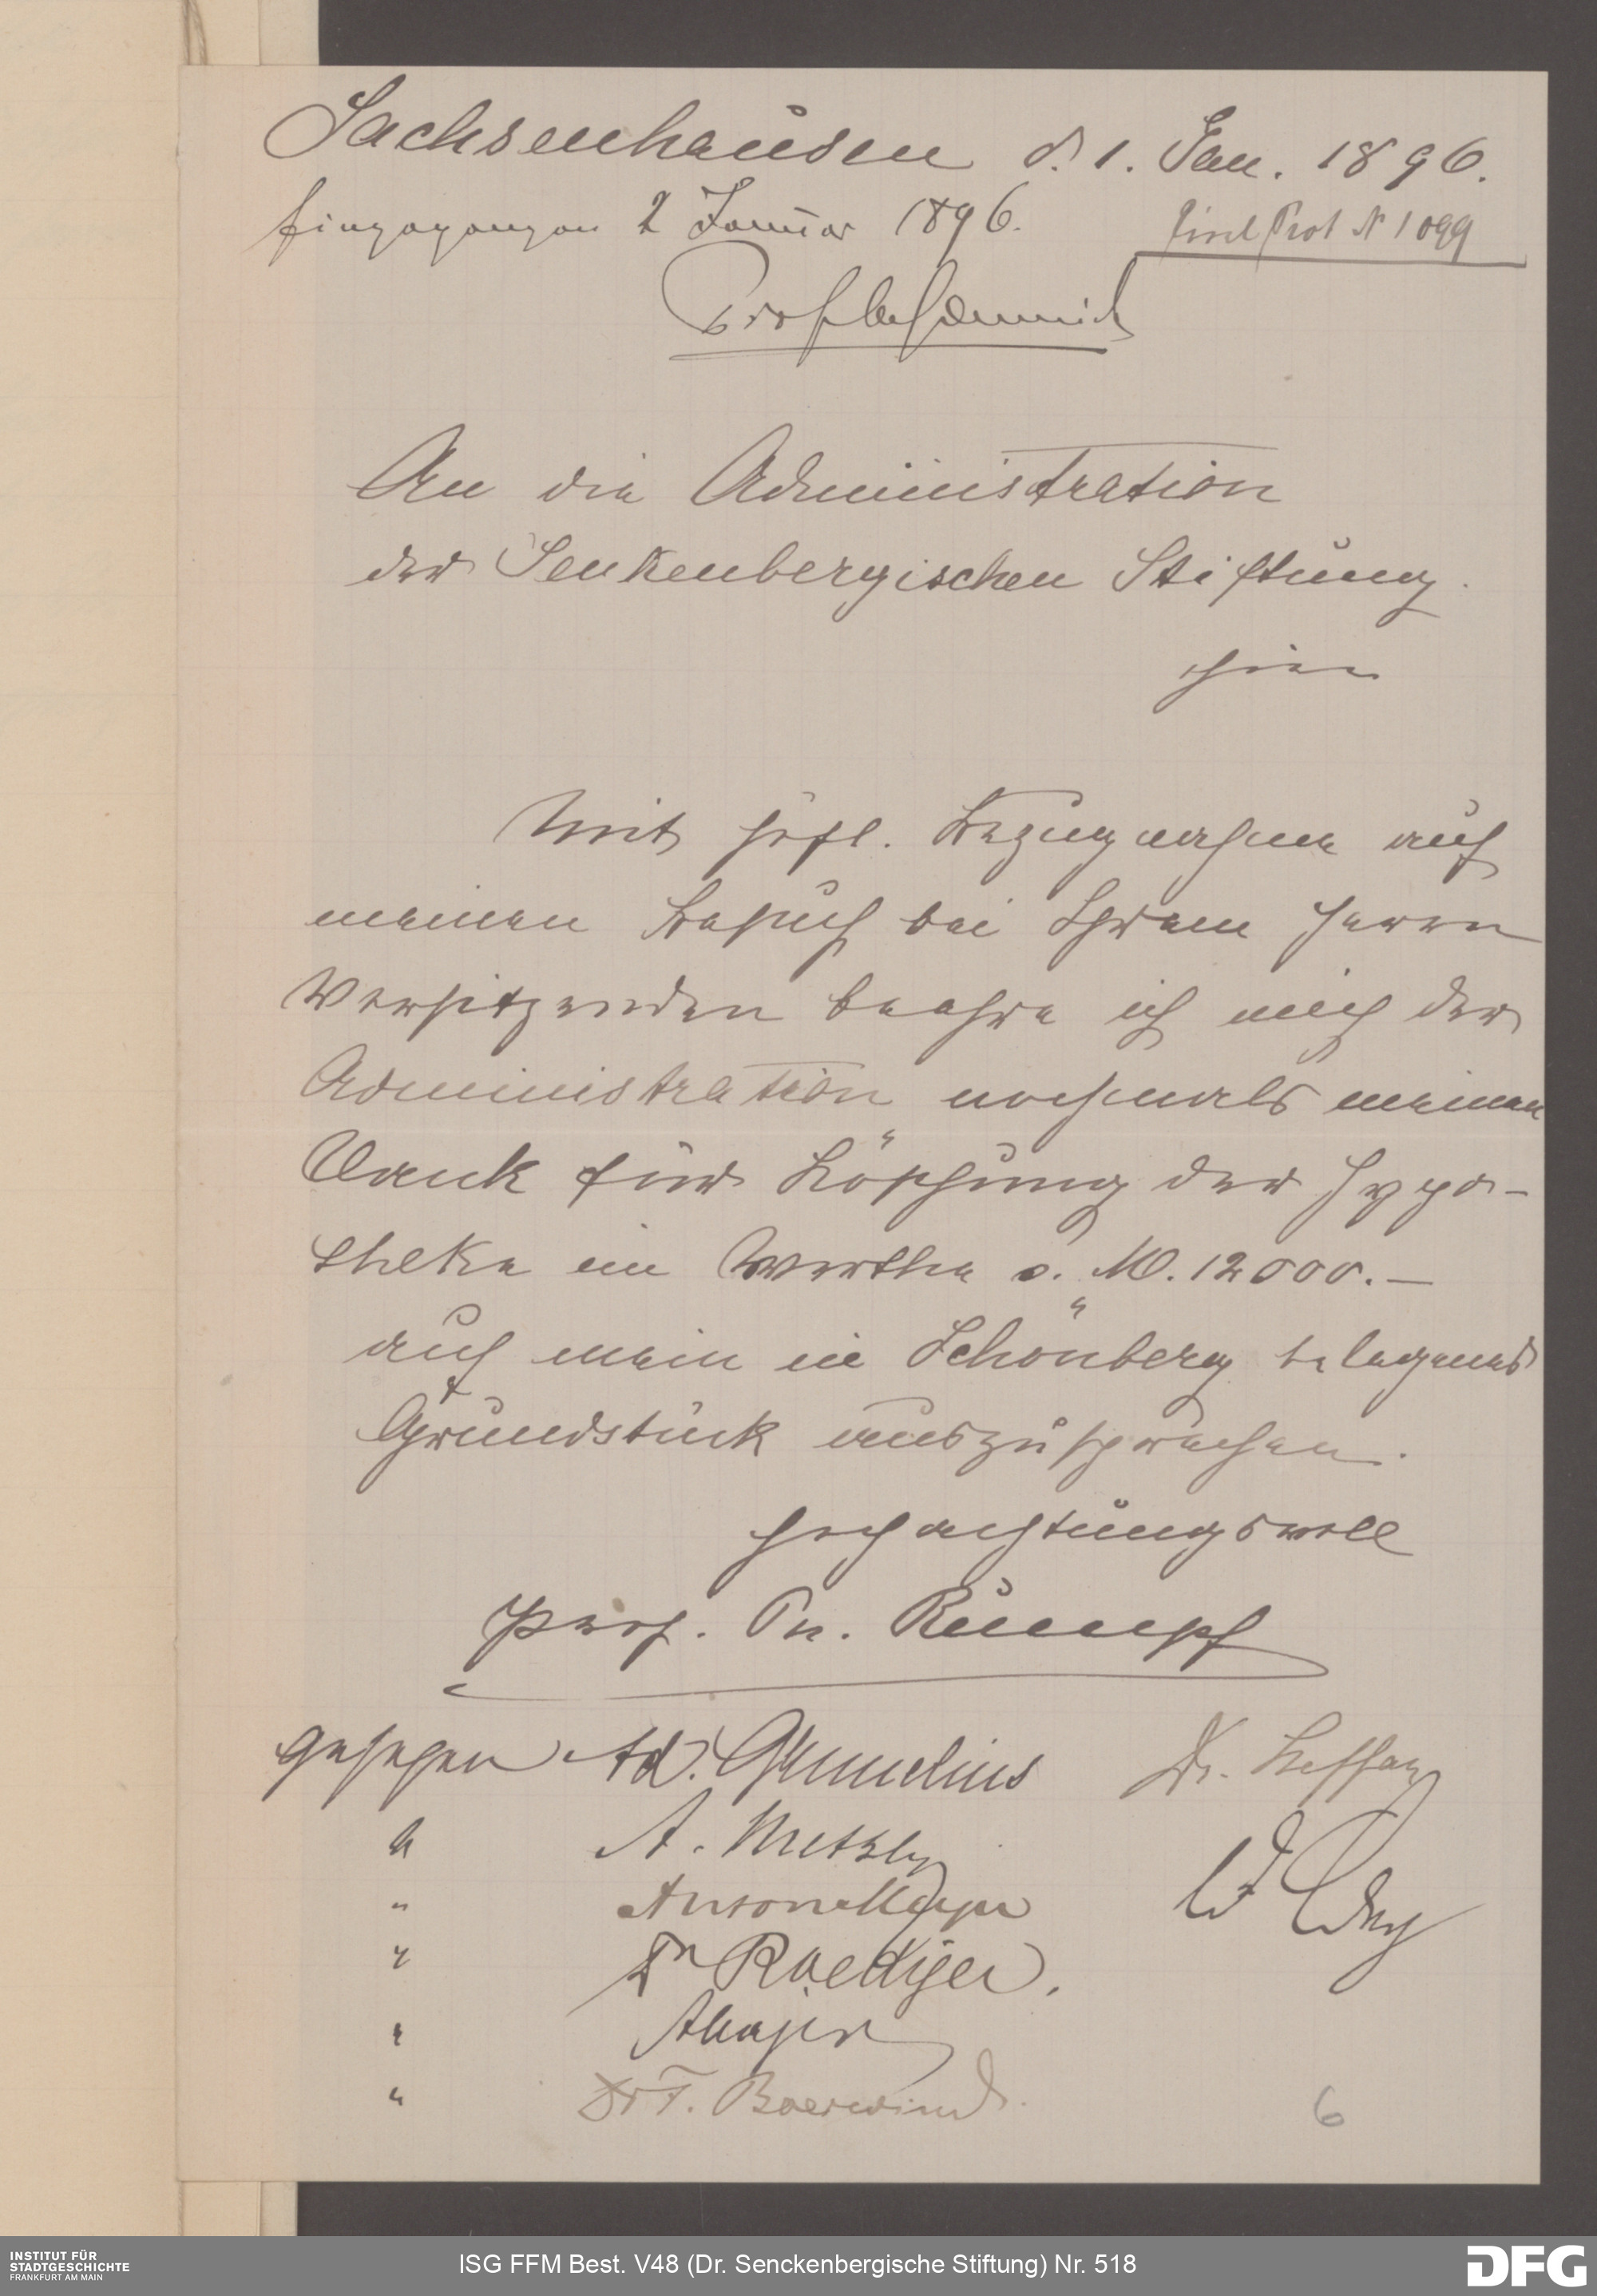 Sachsenhausen d. 1. Jan. 1896.
Eingegangen 2 Januar 1896.
Prot N 1099
An die Administration
der Senkenbergischen Stiftung.
hier
Mit höfl. Bezugnahme auf
meinen Besuch bei Ihrem Herrn
Vorsitzenden beehre ich mich der
Administration nochmals meinen
Dank für Löschung der Hypo-
theke im Werthe v. M. 12000.–
auf mein in Schönberg belegenes
Grundstück auszusprechen.
Hochachtungsvoll
Prof. Fr. Rumpf
gesehen Ad. Gymelius
" A. Metzler
" Anton Meyer
" Dr Roediger.
"
" Dr F. Baerwind.
6
INSTITUT FÜR
STADTGESCHICHTE
FRANKFURT AM MAIN
ISG FFM Best. V48 (Dr. Senckenbergische Stiftung) Nr. 518
DFG